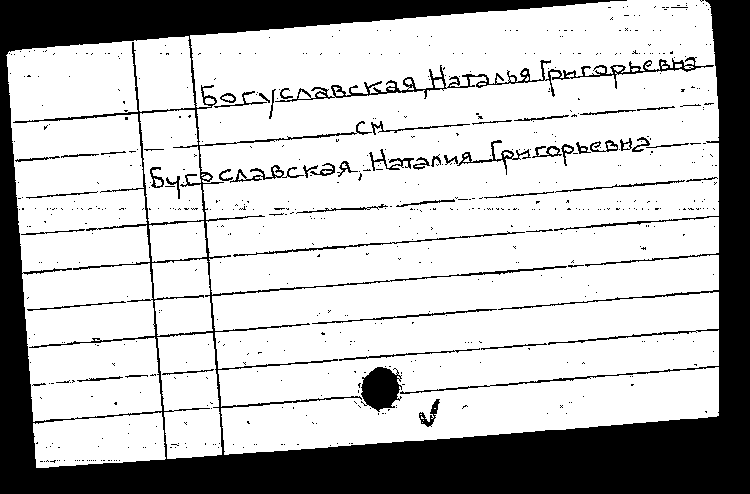 Богуславская, Наталья Григорьевна
см.
Бугославская, Наталия Григорьевна